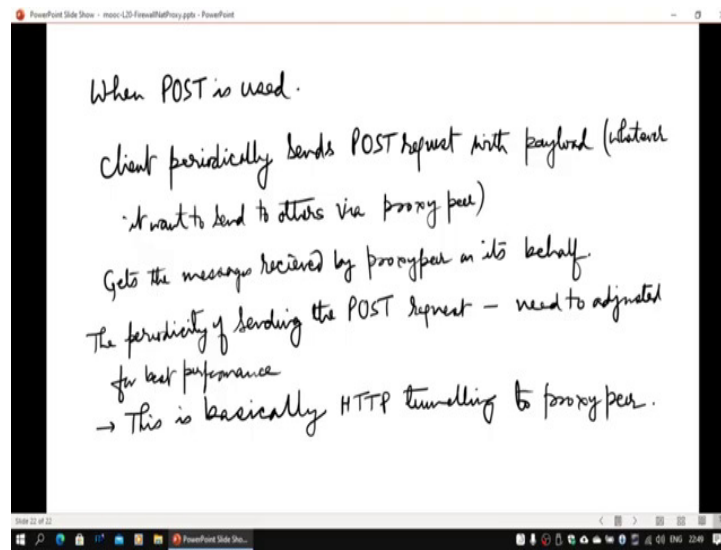 PowerPoint Slide Show - mooc-L20-FirewallNatProxy.pptx - PowerPoint
When POST is used.
Client periodically sends POST request with payload (whatever
it want to send to others via proxy peer)
Gets the messages recieved by proxypeer on its behalf.
The periodicity of sending the POST request – need to adjusted
for best performance
→ This is basically HTTP tunnelling to proxy peer.
Slide 22 of 22
PowerPoint Slide Sho...
ENG 22:49